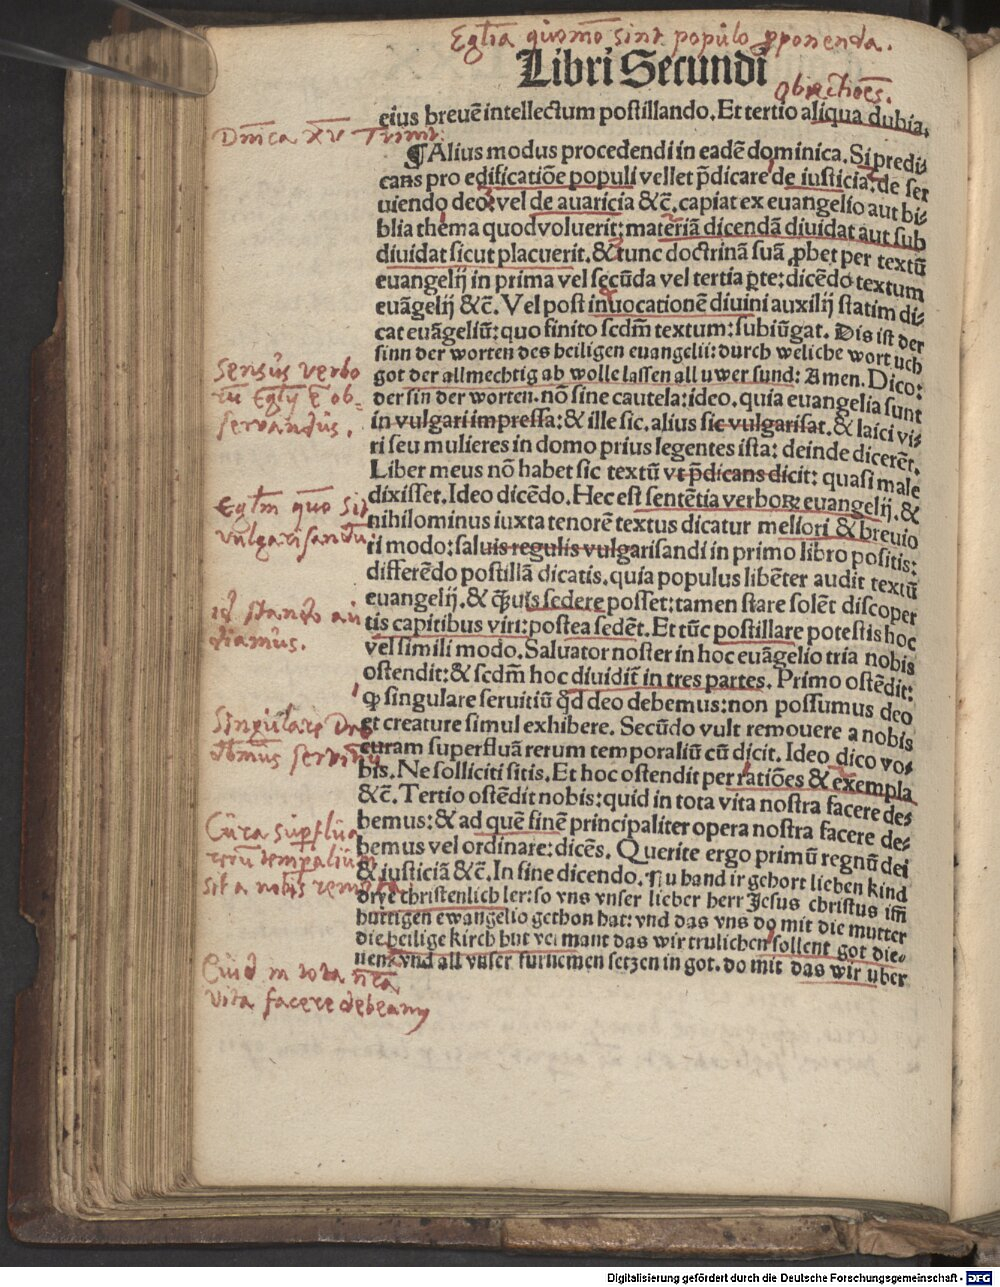 Egl̄ia quomō sint populo ꝓponenda.
Libri Secundi
Obiectiōes.
eius breuē intellectum postillando. Et tertio aliqua dubia.
Dn̄ica XV Trinit:
¶Alius modus procedendi in eadē dominica. Si predi⸗
cans pro edificatiōe populi vellet p̄dicare de iusticia: de ser
uiendo deo: vel de auaricia &c̄. capiat ex euangelio aut bi⸗
blia thema quod voluerit: materiā dicendā diuidat aut sub
diuidat sicut placuerit. & tunc doctrinā suā ꝓbet per textū
euangelij in prima vel secūda vel tertia ꝑte: dicēdo textum
euāgelij &c̄. Vel post inuocationē diuini auxilij statim di⸗
cat euāgeliū: quo finito scdm̄ textum: subiūgat. Dis ist der
sinn der worten des heiligen euangelii: durch weliche wort uch
got der allmechtig ab wolle lassen all uwer sund: Amen. Dico:
der sin der worten. nō sine cautela: ideo. quia euangelia sunt
in vulgari impressa: & ille sic. alius sic vulgarisat. & laici vi⸗
ri seu mulieres in domo prius legentes ista: deinde dicerēt.
Liber meus nō habet sic textū vt p̄dicans dicit: quasi male
dixisset. Ideo dicēdo. Hec est sentētia verboꝝ euangelij. &
nihilominus iuxta tenorē textus dicatur meliori & breuio
ri modo: saluis regulis vulgarisandi in primo libro positis:
differēdo postillā dicatis. quia populus libēter audit textū
euangelij. & q̄uis sedere posset: tamen stare solēt discoper
tis capitibus viri: postea sedēt. Et tūc postillare potestis hoc
vel simili modo. Saluator noster in hoc euāgelio tria nobis
ostendit: & scdm̄ hoc diuidit̄ in tres partes. Primo ostēdit:
ꝙ singulare seruitiū qd̄ deo debemus: non possumus deo
et creature simul exhibere. Secūdo vult remouere a nobis
curam superfluā rerum temporaliū cū dicit. Ideo dico vo⸗
bis. Ne solliciti sitis. Et hoc ostendit per ratiōes & exempla
&c̄. Tertio ostēdit nobis: quid in tota vita nostra facere des
bemus: & ad quē finē principaliter opera nostra facere de⸗
bemus vel ordinare: dicēs. Querite ergo primū regnū dei
& iusticiā &c̄. In fine dicendo. Nu hand ir gehort lieben kind
drye christenlich ler: so vns vnser lieber herr Jesus christus im̄
huttigen ewangelio gethon hat: vnd das vns do mit die mutter
die heilige kirch hut vermant das wir trulichen sollent got die⸗
nen: vnd all vnser furnemen setzen in got. do mit das wir uber
Sensus verbo
servandus.
Egl̄m quō sit
vulgarisandū
stando au
diamus.
Singulare Deo
Cura supflua
rerū temp̄alium
sit a nobis remota
Quid in tota nr̄a
vita facere debeamus